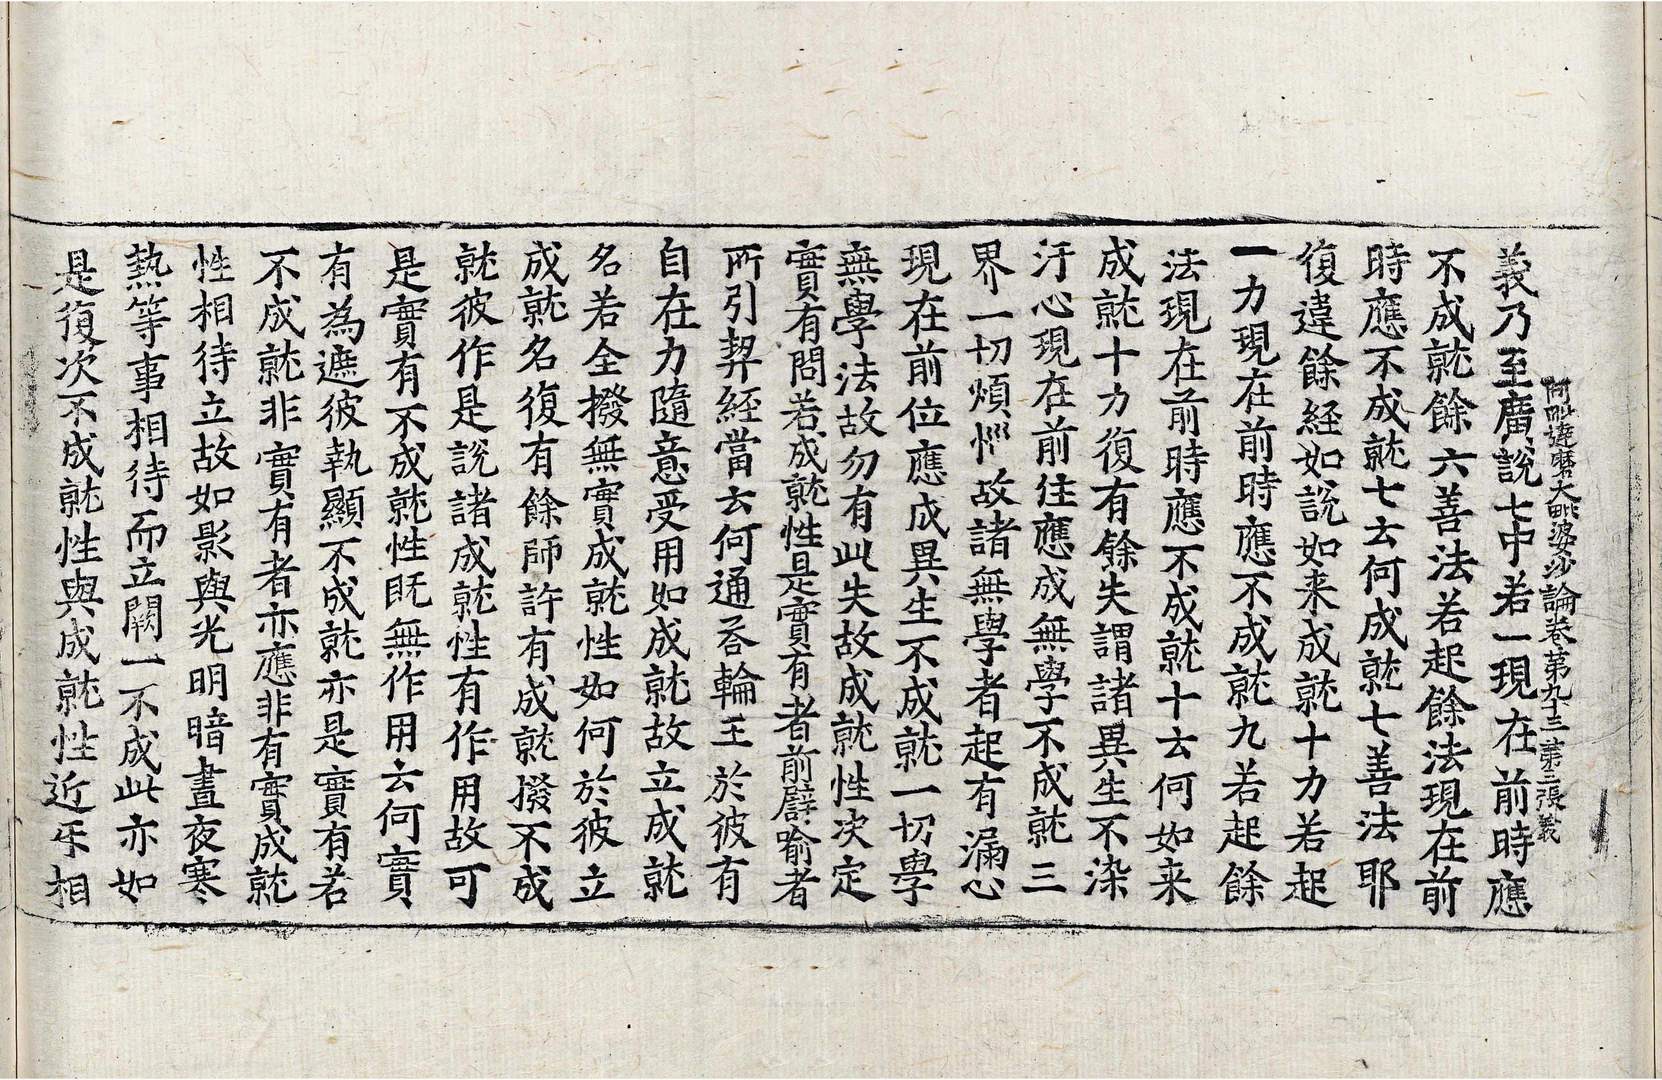 阿毗達磨大毗婆沙論卷第九十三 第二張 義
義乃至廣說七中若一現在前時應
不成就餘六善法若起餘法現在前
時應不成就七云何成就七善法耶
復違餘経如說如来成就十力若起
一力現在前時應不成就九若起餘
法現在前時應不成就十云何如来
成就十力復有餘失謂諸異生不染
汙心現在前住應成無學不成就三
界一切煩惱故諸無學者起有漏心
現在前位應成異生不成就一切學
無學法故勿有此失故成就性决定
實有問若成就性是實有者前譬喻者
所引契経當云何通荅輪王於彼有
自在力隨意受用如成就故立成就
名若全撥無實成就性如何於彼立
成就名復有餘師許有成就撥不成
就彼作是說諸成就性有作用故可
是實有不成就性旣無作用云何實
有為遮彼執顯不成就亦是實有若
不成就非實有者亦應非有實成就
性相待立故如影與光明暗晝夜寒
熱等事相待而立闕一不成此亦如
是復次不成就性與成就性近㸦相